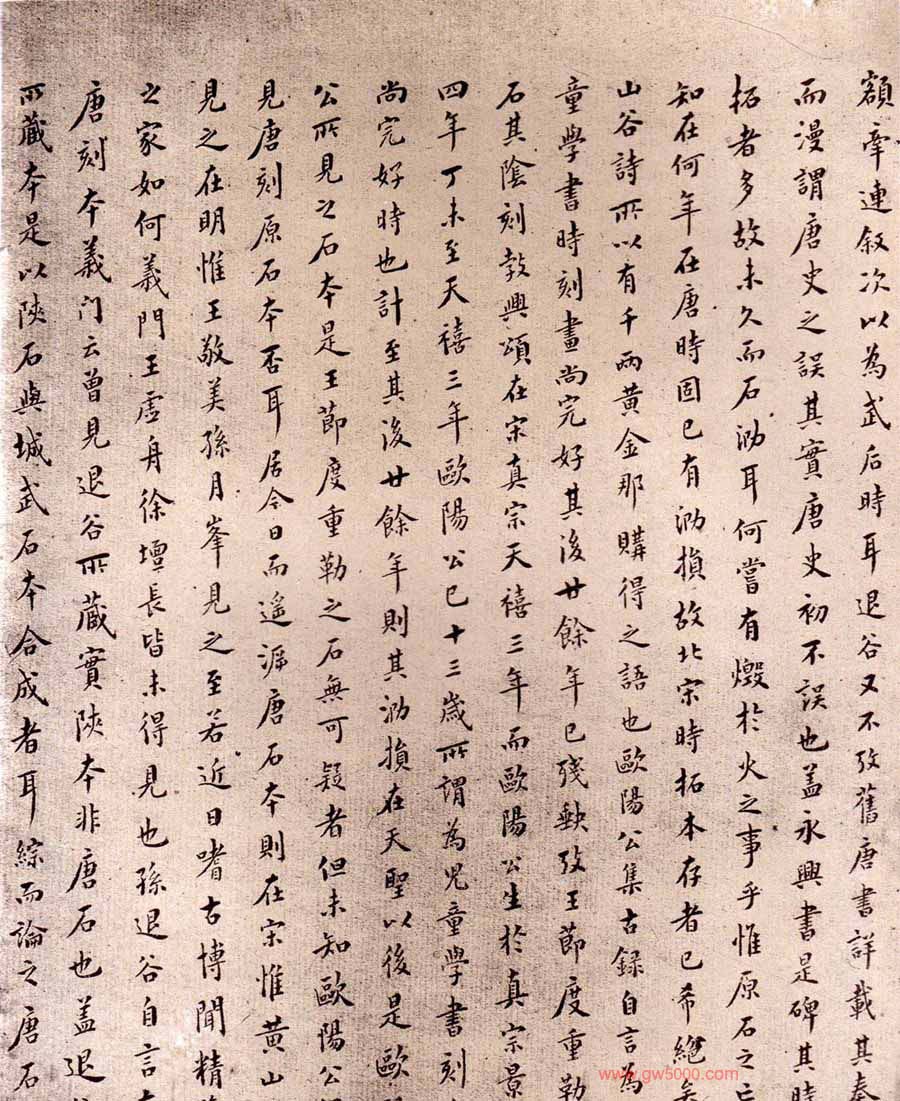 額牽連叙次以為武后時耳退谷又不攷舊唐書詳載其奏
而漫謂唐史之誤其實唐史初不誤也盖永興書是碑其時
拓者多故未久而石泐耳何嘗有燬於火之事乎惟原石之亡
知在何年在唐時固已有泐損故北宋時拓本存者已希絕矣
山谷詩所以有千兩黃金那購得之語也歐陽公集古錄自言為
童學書時刻畫尚完好其後廿餘年已殘缺攷王節度重勒
石其陰刻敎興頌在宋真宗天禧三年而歐陽公生於真宗景
四年丁未至天禧三年歐陽公已十三歲所謂為児童學書刻
尚完好時也計至其後廿餘年則其泐損在天聖以後是歐
公所見之石本是王節度重勒之石無可疑者但未知歐陽公
見唐刻原石本否耳居今日而遥溯唐石本則在宋惟黃山
見之在明惟王敬美孫月峯見之至若近日嗜古博聞精
之家如何義門王虛舟徐壇長皆未得見也孫退谷自言
唐刻本義门云曾見退谷所藏實陝本非唐石也盖退
所藏本是以陝石與城武石本合成者耳綜而論之唐石
www.gw5000.com